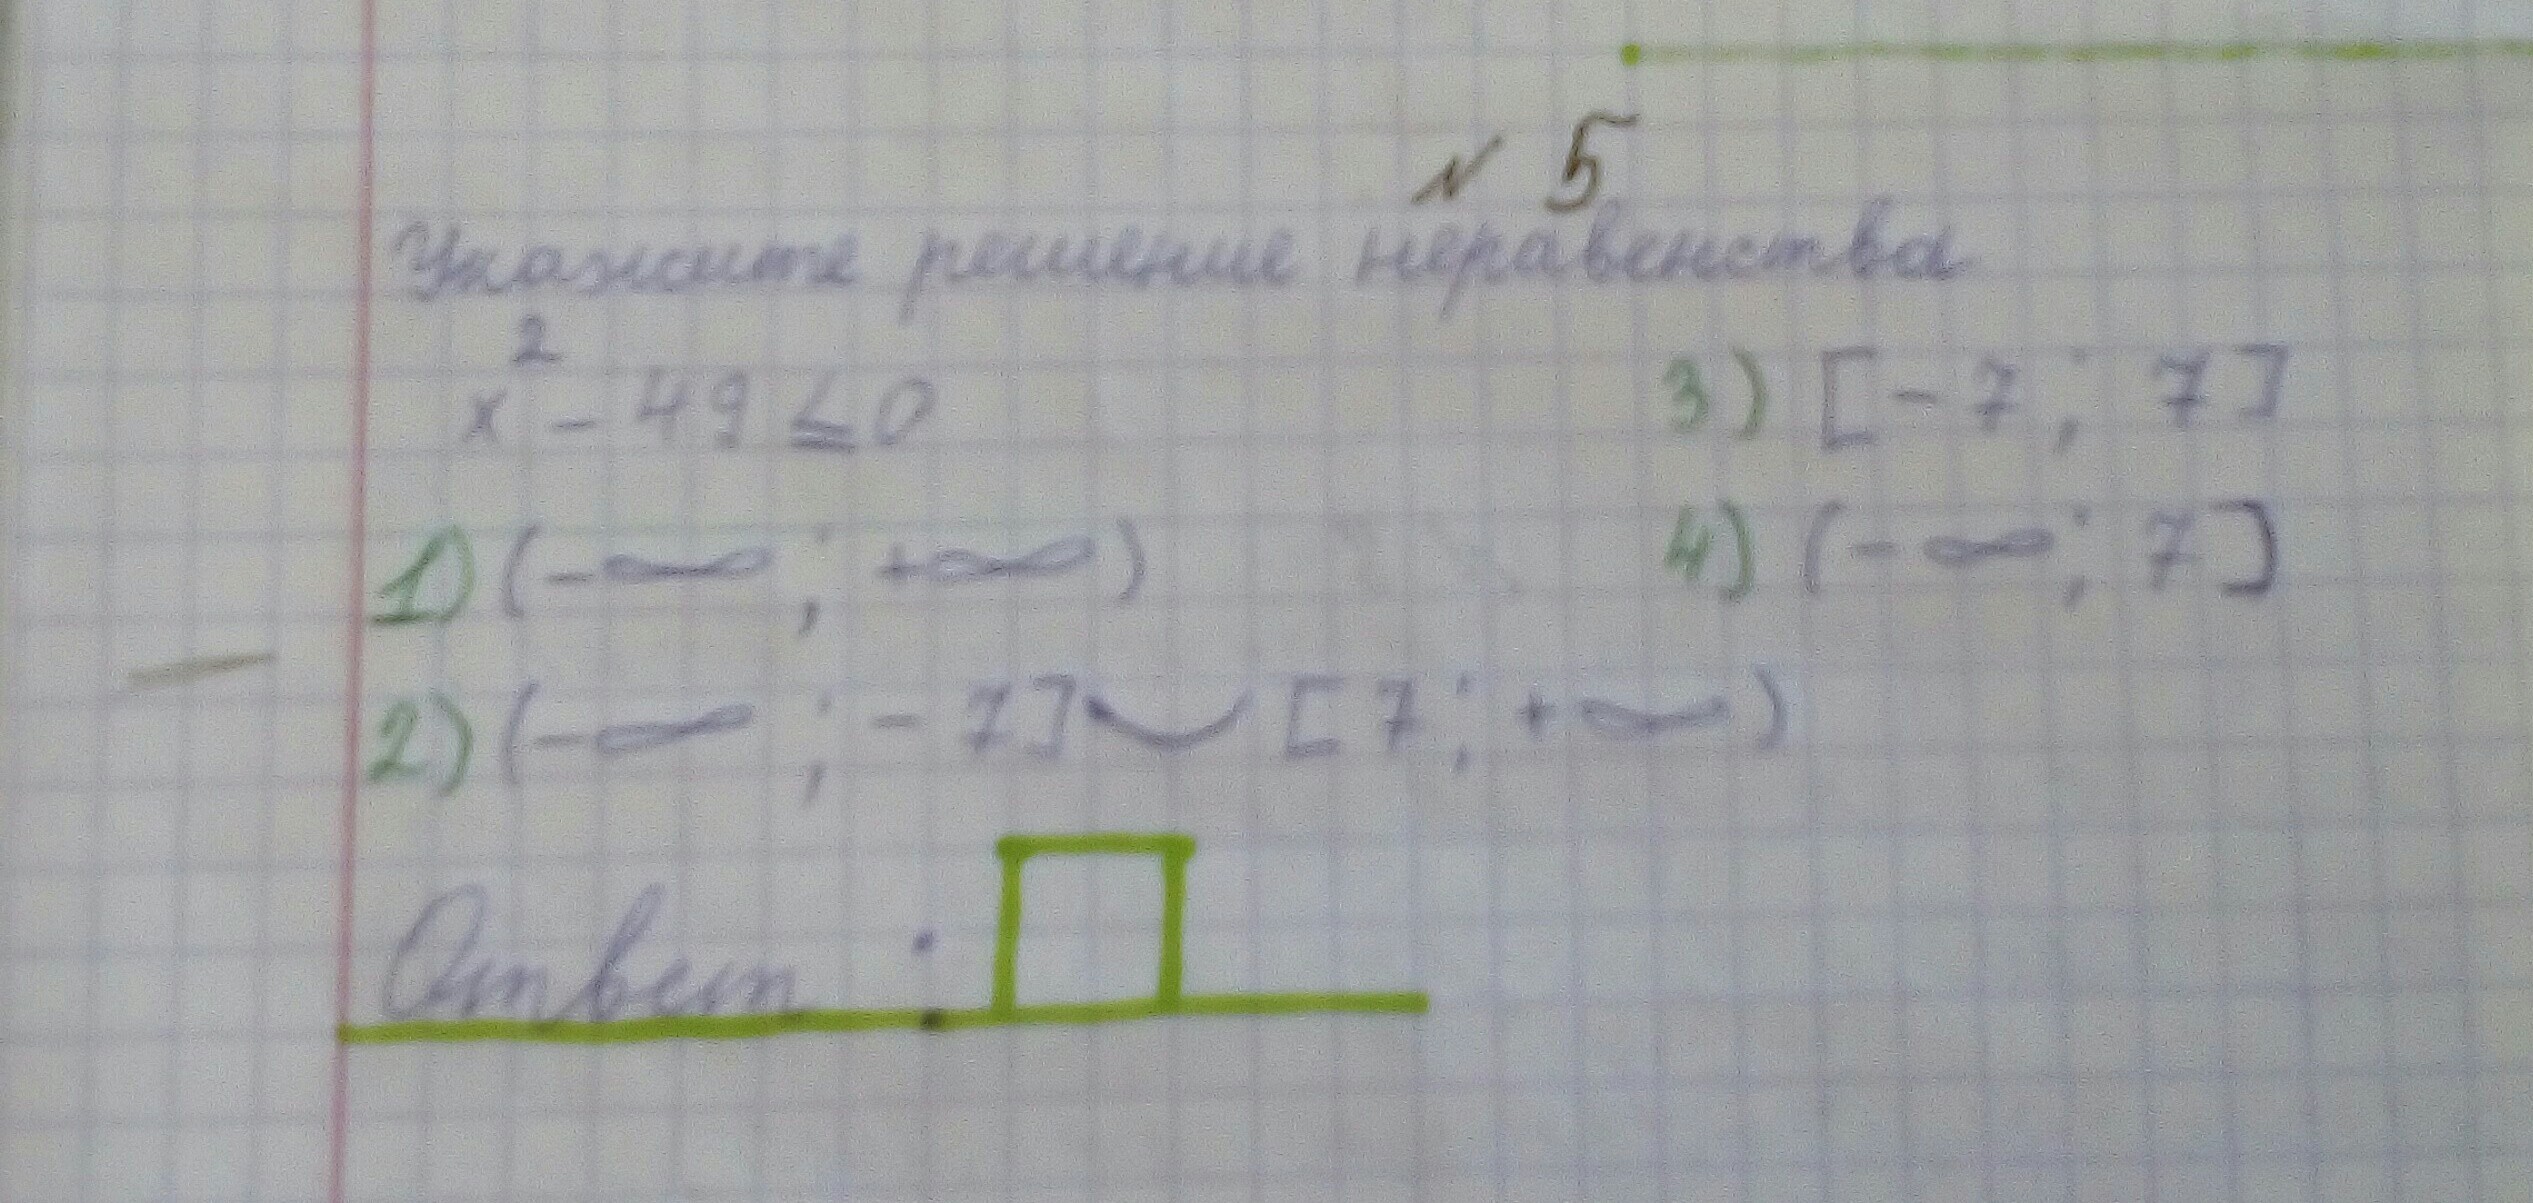 № 5
Укажите решение неравенства
x² - 49 ≤ 0
3) [-7; 7]
1) (-∞; +∞)
4) (-∞; 7]
2) (-∞; -7] ∪ [7; +∞)
Ответ: